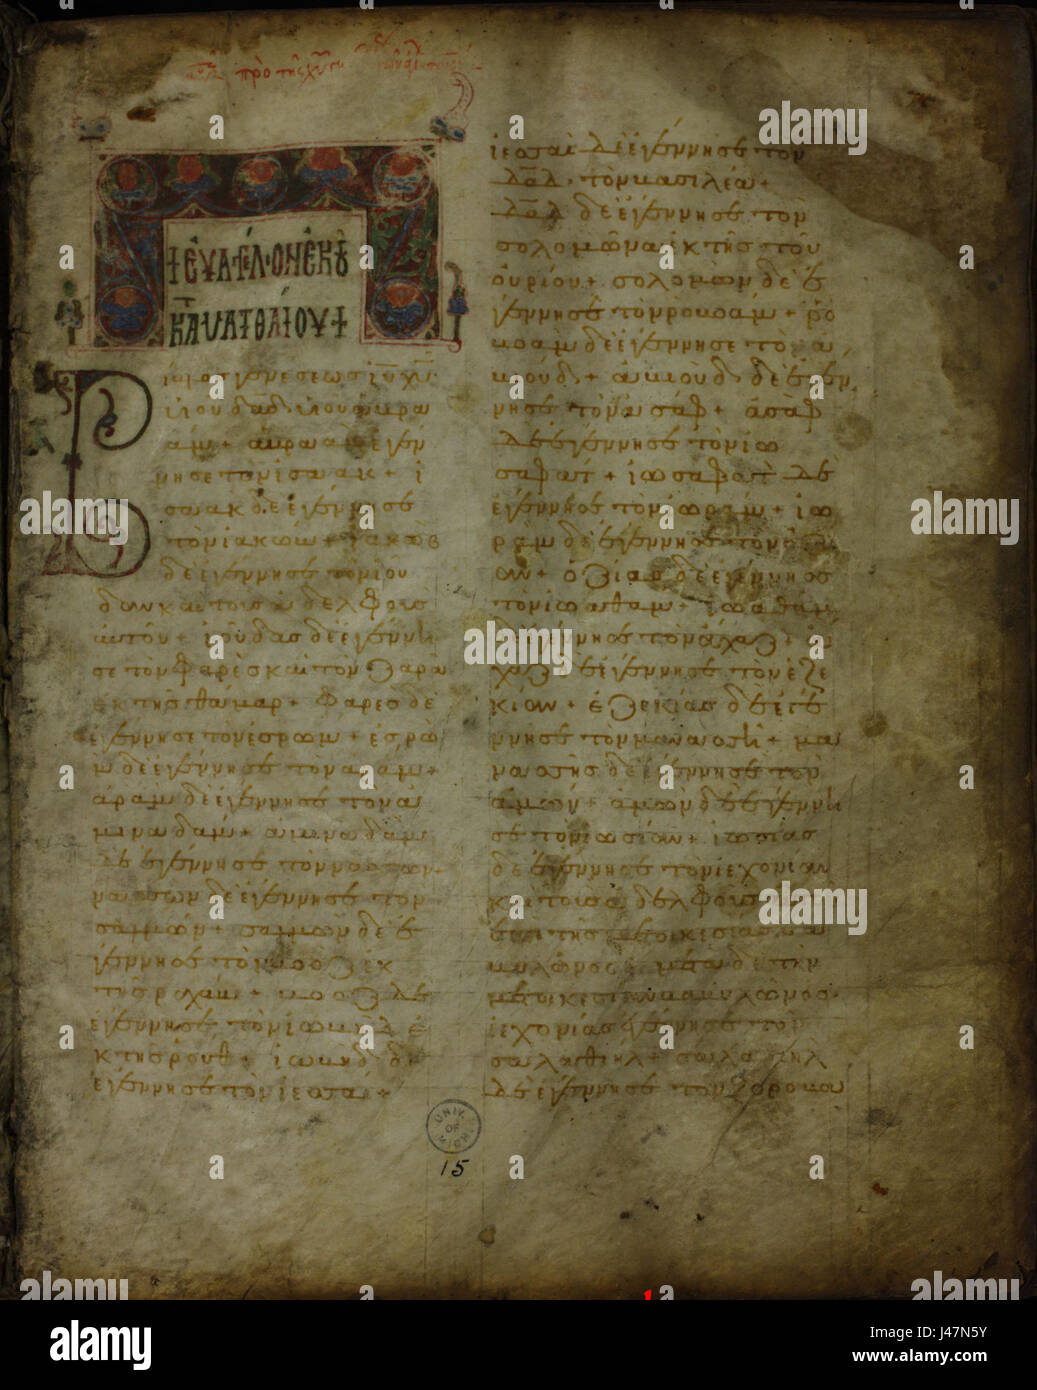 πρὸ τῆς χυ
+ ἐυαγλιον ἐκ τοῦ
κατα ματθαίου +
Βίβλος γενέσεως ιυ χυ
υἱου δαδ υἱου ἀβρα
άμ + ἀβραὰμ ἐγέν
νησε τὸν ἰσαακ + ἰ
σαακ δὲ ἐγέννησε
τὸν ἰακώβ + ἰακὼβ
δὲ ἐγέννησε τὸν ἰού
δαν καὶ τοὺς ἀδελφοὺς
ἀυτοῦ + ἰούδας δὲ ἐγέννη
σε τὸν φαρὲς καὶ τὸν ζαρὰ
ἐκ τῆς θάμαρ + φαρὲς δὲ
ἐγέννησε τὸν ἐσρώμ + ἐσρὼ
μ δὲ ἐγέννησε τὸν ἀράμ +
ἀρὰμ δὲ ἐγέννησε τὸν ἀ
μιναδάμ + ἀμιναδὰμ
δὲ ἐγέννησε τὸν ναασσών
ναασσὼν δὲ ἐγέννησε τὸν
σαλμών + σαλμὼν δὲ ἐ
γέννησε τὸν βοὸζ ἐκ
τῆς ραχάβ + βοὸζ δὲ
ἐγέννησε τὸν ἰωβὴδ ἐ
κ τῆς ροὺθ + ἰωβὴδ δὲ
ἐγέννησε τὸν ἰεσσαί +
ἰεσσαὶ δὲ ἐγέννησε τὸν
δαδ τὸν βασιλέα +
δαδ δὲ ἐγέννησε τὸν
σολομῶνα ἐκ τῆς τοῦ
οὐρίου + σολομὼν δὲ ἐ
γέννησε τὸν ροβοάμ + ρο
βοὰμ δὲ ἐγέννησε τὸν ἀ
βιούδ + ἀβιοὺδ δὲ ἐγέν
νησε τὸν ἀσάφ + ἀσὰφ
δὲ ἐγέννησε τὸν ἰω
σαφατ + ἰωσαφὰτ δὲ
ἐγέννησε τὸν ἰωράμ + ἰω
ρὰμ δὲ ἐγέννησε τὸν ὀζί
αν + ὀζίας δὲ ἐγέννησε
τὸν ἰωαθαμ + ἰωάθαμ
δὲ ἐγέννησε τὸν ἄχαζ + ἄ
χαζ δὲ ἐγέννησε τὸν ἐζε
κίαν + ἐζεκίας δὲ ἐγέ
ννησε τὸν μανασσῆ + μα
νασσῆς δὲ ἐγέννησε τὸν
ἀμών + ἀμὼν δὲ ἐγέννη
σε τὸν ἰωσίαν + ἰωσίας
δὲ ἐγέννησε τὸν ἰεχονίαν
καὶ τοὺς ἀδελφοὺς αὐτοῦ
ἐπὶ τῆς μετοικεσίας βα
βυλῶνος + μετὰ δὲ τὴν
μετοικεσίαν βαβυλῶνος
ἰεχονίας ἐγέννησε τὸν
σαλαθιὴλ + σαλαθιὴλ
δὲ ἐγέννησε τὸν ζοροβα
UNIV. OF MICH.
15
alamy
Image ID: J47N5Y
www.alamy.com